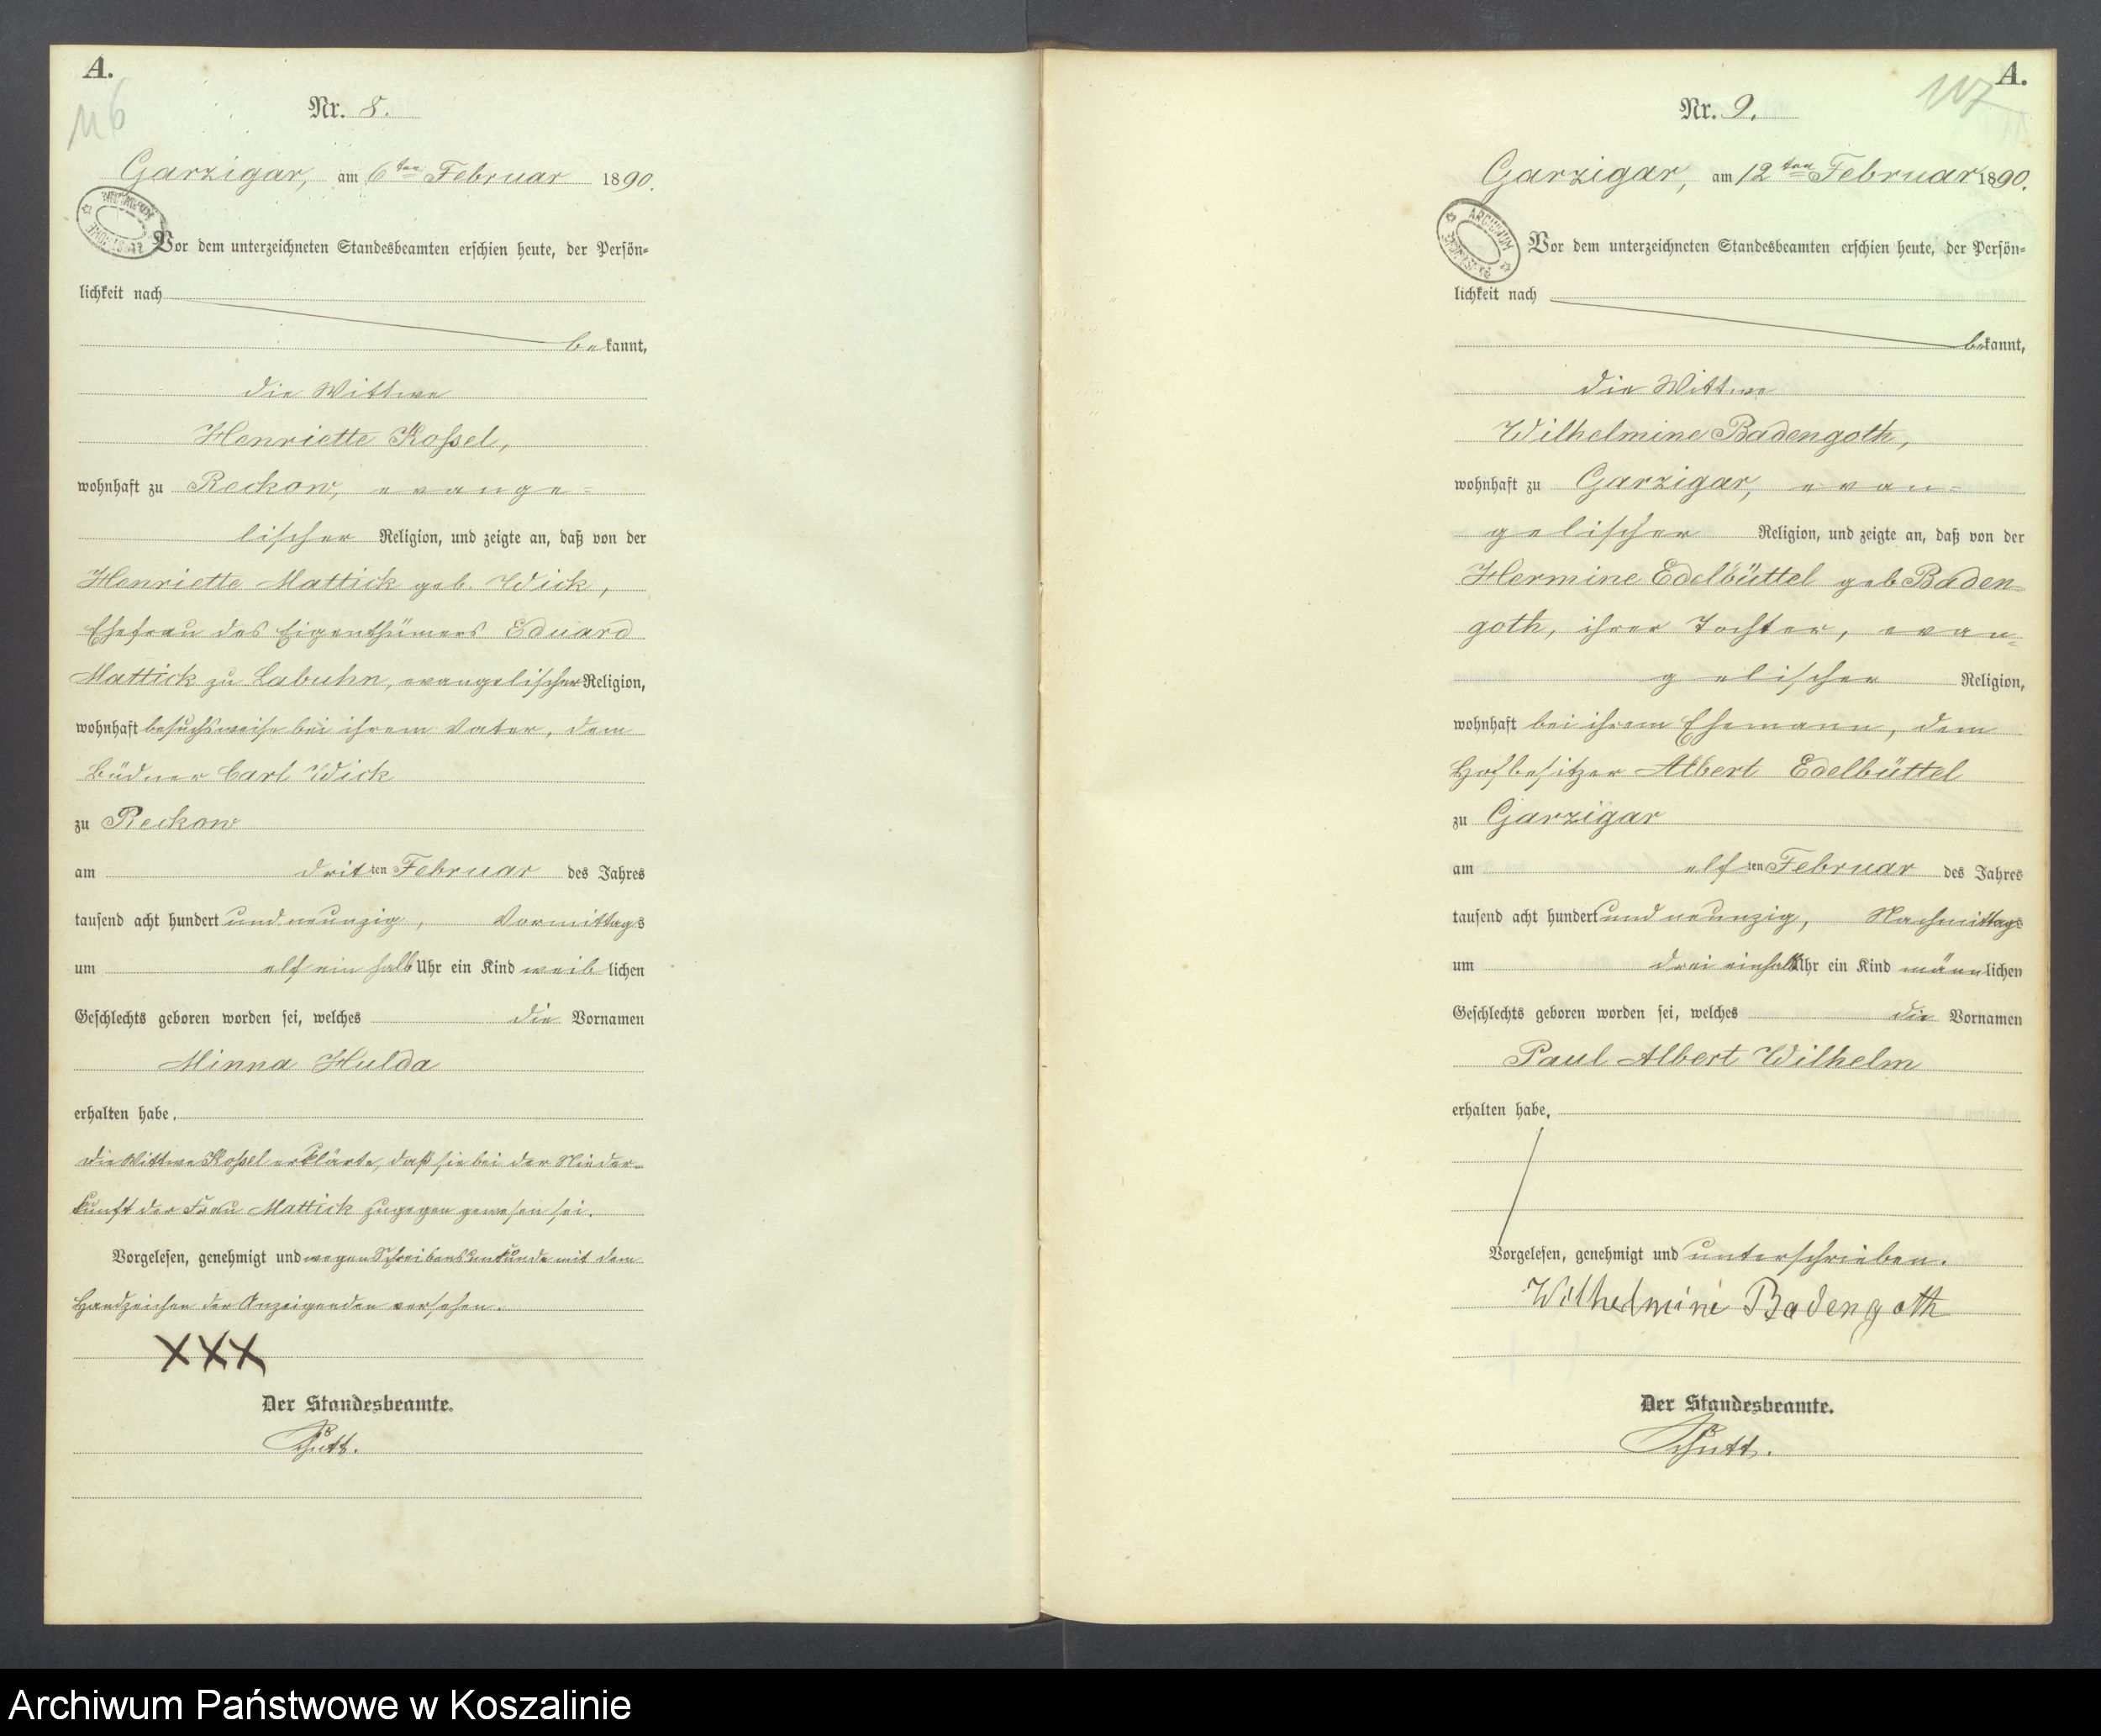 A.
116
Nr. 8.
Garzigar, am 6ten Februar 1890.
Vor dem unterzeichneten Standesbeamten erschien heute, der Persön-
lichkeit nach
bekannt,
die Wittwe
Henriette Koßel,
wohnhaft zu Reckow, evange-
lischer Religion, und zeigte an, daß von der
Henriette Mattick geb. Wick,
Ehefrau des Eigenthümers Eduard
Mattick zu Labuhn, evangelischer Religion,
wohnhaft besuchsweise bei ihrem Vater, dem
Büdner Carl Wick
zu Reckow
am dritten Februar des Jahres
tausend acht hundert und neunzig, Vormittags
um elf ein halb Uhr ein Kind weiblichen
Geschlechts geboren worden sei, welches die Vornamen
Minna Hulda
erhalten habe.
Die Wittwe Koßel erklärte, daß sie bei der Nieder-
kunft der Frau Mattick zugegen gewesen sei.
Vorgelesen, genehmigt und wegen Schreibensunkunde mit dem
Handzeichen der Anzeigenden versehen.
XXX
Der Standesbeamte.
A.
117
Nr. 9.
Garzigar, am 12ten Februar 1890.
ARCHIWUM
Vor dem unterzeichneten Standesbeamten erschien heute, der Persön-
lichkeit nach
bekannt,
die Wittwe
Wilhelmine Badengoth,
wohnhaft zu Garzigar, evan-
gelischer Religion, und zeigte an, daß von der
Hermine Edelbüttel geb Baden-
goth, ihrer Tochter, evan-
gelischer Religion,
wohnhaft bei ihrem Ehemann, dem
Hofbesitzer Albert Edelbüttel
zu Garzigar
am elften Februar des Jahres
tausend acht hundert und neunzig, Nachmittags
um drei einhalb Uhr ein Kind männlichen
Geschlechts geboren worden sei, welches die Vornamen
Paul Albert Wilhelm
erhalten habe.
Vorgelesen, genehmigt und unterschrieben.
Wilhelmine Badengoth
Der Standesbeamte.
Archiwum Państwowe w Koszalinie